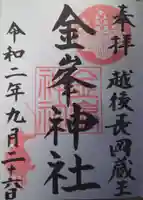 奉拝
越後長岡蔵王
金峯神社
令和二年九月二十六日